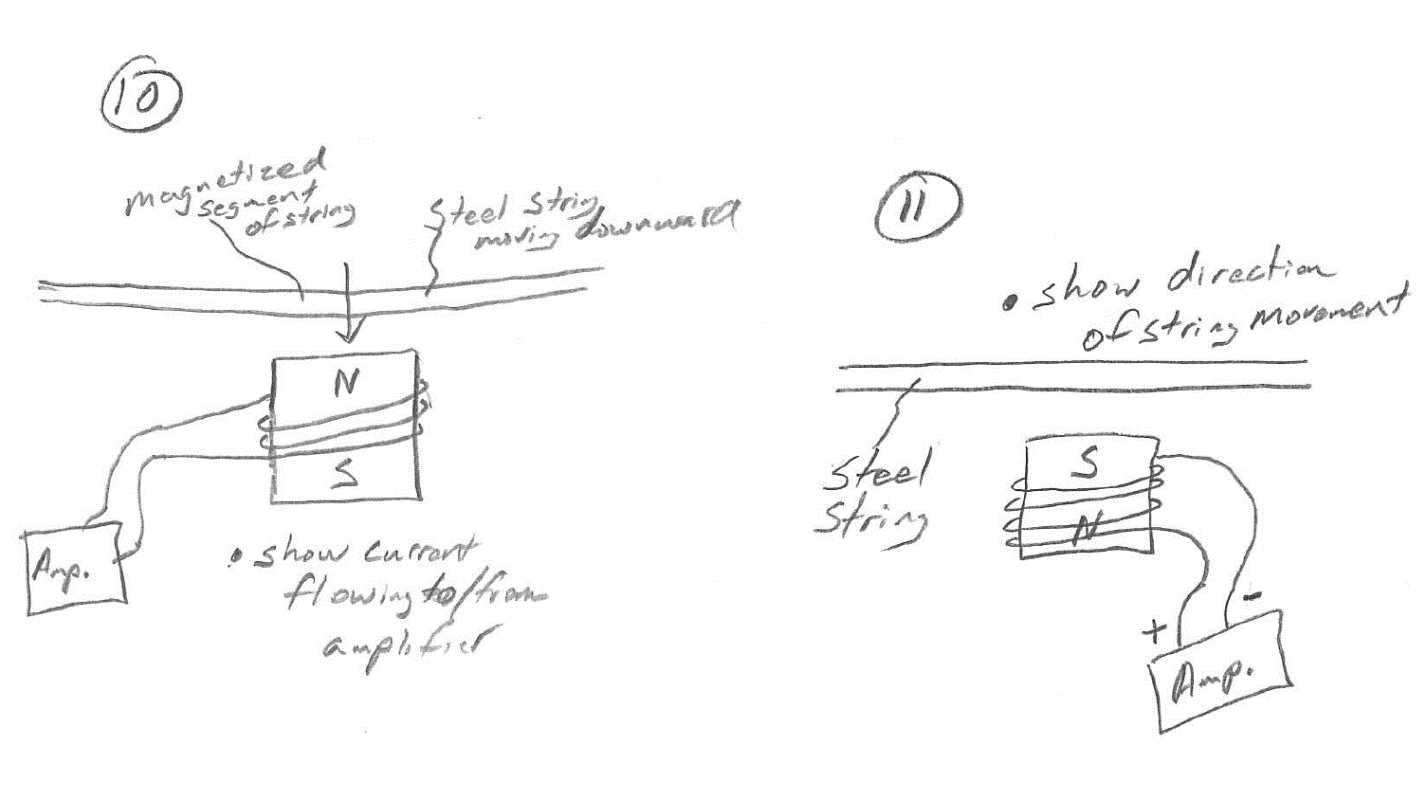 10
magnetized
segment
of string
Steel String
moving downward
N
S
Amp.
• show current
flowing to/from
amplifier
11
• show direction
of string movement
Steel
String
S
N
+
-
Amp.